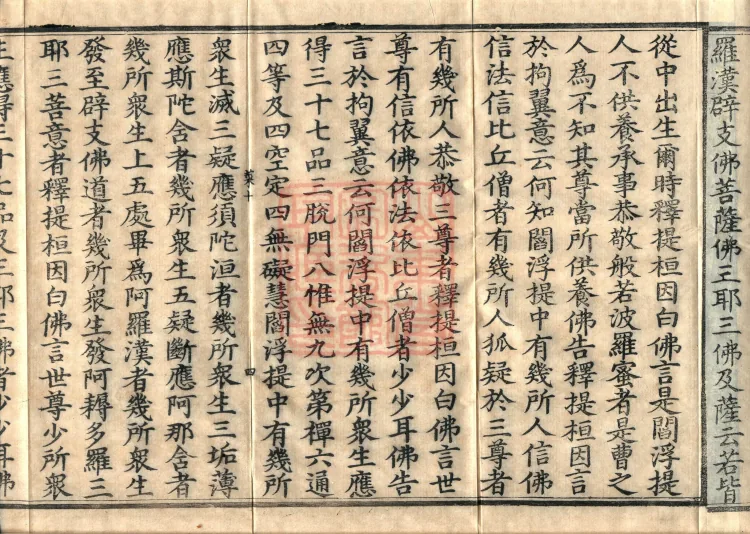 羅漢辟支佛菩薩佛三耶三佛及薩云若皆
從中出生爾時釋提桓因白佛言是閻浮提
人不供養承事恭敬般若波羅蜜者是曹之
人爲不知其尊當所供養佛告釋提桓因言
於拘翼意云何知閻浮提中有幾所人信佛
信法信比丘僧者有幾所人狐疑於三尊者
有幾所人恭敬三尊者釋提桓因白佛言世
尊有信依佛依法依比丘僧者少少耳佛告
言於拘翼意云何閻浮提中有幾所衆生應
得三十七品三脫門八惟無九次第禪六通
四等及四空定四無礙慧閻浮提中有幾所
葉十
四
衆生滅三疑應須陀洹者幾所衆生三垢薄
應斯陀含者幾所衆生五疑斷應阿那含者
幾所衆生上五處畢爲阿羅漢者幾所衆生
發至辟支佛道者幾所衆生發阿耨多羅三
耶三菩意者釋提桓因白佛言世尊少所衆
生應得三十七品及三耶三佛者少少耳佛